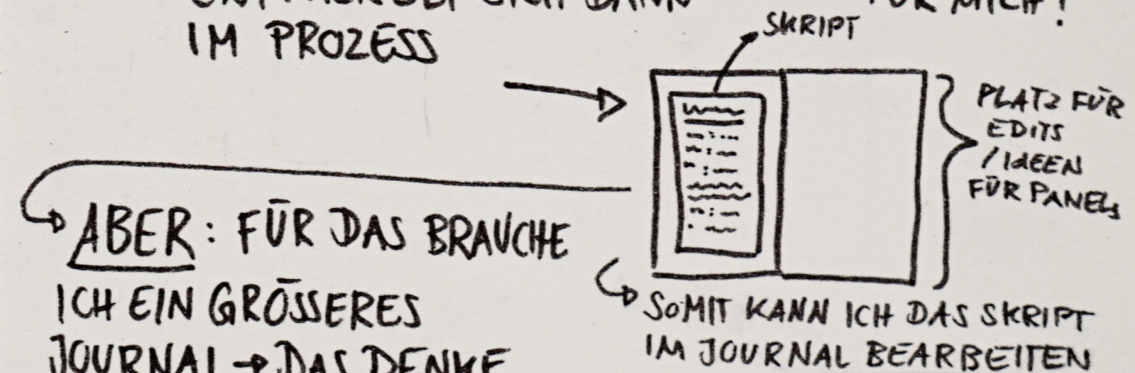 IM PROZESS
FÜR MICH!
SKRIPT
PLATZ FÜR
EDITS
/ IDEEN
FÜR PANELS
ABER: FÜR DAS BRAUCHE
ICH EIN GRÖSSERES
JOURNAL → DAS DENKE
SOMIT KANN ICH DAS SKRIPT
IM JOURNAL BEARBEITEN